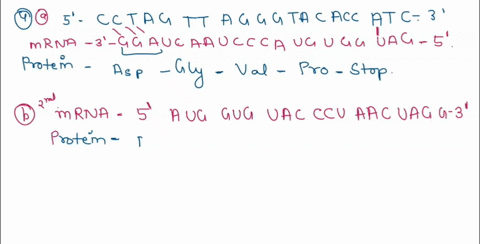 ④ ⓐ 5'- CCTAG TT AGGGTACACC ATC-3'
mRNA -3'-GGAUCAAUCCCA UG UGG UAG-5'.
Protein - Asp - Gly - Val - Pro - Stop.
ⓑ 2nd mRNA - 5' AUG GUG UAC CCU AAC UAG G-3'
Protein -